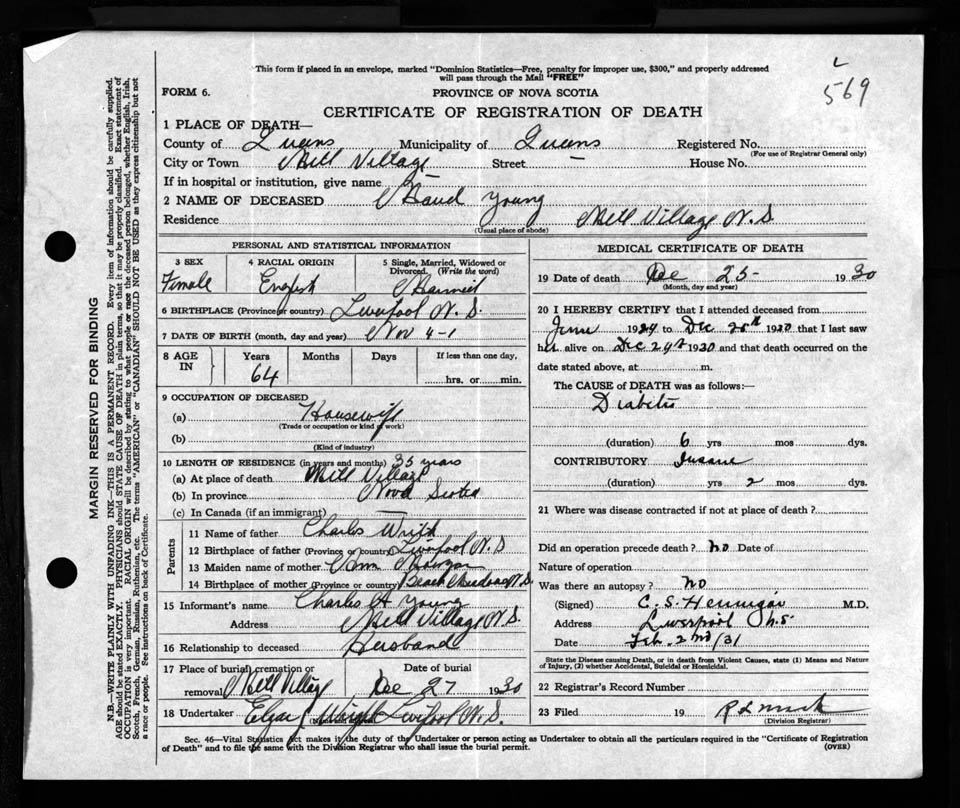 This form if placed in an envelope, marked "Dominion Statistics—Free, penalty for improper use, $300," and properly addressed
will pass through the Mail "FREE"
569
FORM 6.
PROVINCE OF NOVA SCOTIA
CERTIFICATE OF REGISTRATION OF DEATH
1 PLACE OF DEATH—
County of Queens Municipality of Queens Registered No.
(For use of Registrar General only)
City or Town Mill Village Street — House No.
If in hospital or institution, give name —
2 NAME OF DECEASED Maud Young
Residence Mill Village N.S.
(Usual place of abode)
PERSONAL AND STATISTICAL INFORMATION
3 SEX 4 RACIAL ORIGIN 5 Single, Married, Widowed or Divorced. (Write the word)
Female English Married
6 BIRTHPLACE (Province or country) Liverpool N.S.
7 DATE OF BIRTH (month, day and year) Nov 4-1
8 AGE IN Years Months Days If less than one day,
64 hrs. or min.
9 OCCUPATION OF DECEASED
(a) Housewife
(Trade or occupation or kind of work)
(b)
(Kind of industry)
10 LENGTH OF RESIDENCE (in years and months) 35 years
(a) At place of death Mill Village
(b) In province Nova Scotia
(c) In Canada (if an immigrant) —
Parents
11 Name of father Charles
12 Birthplace of father (Province or country) Liverpool N.S
13 Maiden name of mother Ann Morgan
14 Birthplace of mother (Province or country) Beach Meadows N.S.
15 Informant's name Charles A Young
Address Mill Village N.S.
16 Relationship to deceased Husband
17 Place of burial, cremation or Date of burial
removal Mill Village Dec 27 1930
18 Undertaker Liverpool N.S.
MEDICAL CERTIFICATE OF DEATH
19 Date of death Dec 25- 1930
(Month, day and year)
20 I HEREBY CERTIFY that I attended deceased from
June 1924 to Dec 1930 that I last saw
her alive on Dec 1930 and that death occurred on the
date stated above, at m.
The CAUSE of DEATH was as follows:—
Diabetes
(duration) 6 yrs mos dys.
CONTRIBUTORY Insane
(duration) yrs 2 mos dys.
21 Where was disease contracted if not at place of death?
Did an operation precede death? no Date of
Nature of operation
Was there an autopsy? no
(Signed) C. S. Hennigar M.D.
Address Liverpool N.S.
Date Feb. 2nd/31
State the Disease causing Death, or in death from Violent Causes, state (1) Means and Nature
of Injury, (2) whether Accidental, Suicidal or Homicidal.
22 Registrar's Record Number
23 Filed 19
(Division Registrar)
Sec. 46—Vital Statistics Act makes it the duty of the Undertaker or person acting as Undertaker to obtain all the particulars required in the "Certificate of Registration
of Death" and to file the same with the Division Registrar who shall issue the burial permit. (OVER)
MARGIN RESERVED FOR BINDING
N.B.—WRITE PLAINLY WITH UNFADING INK—THIS IS A PERMANENT RECORD. Every item of information should be carefully supplied.
AGE should be stated EXACTLY. PHYSICIANS should STATE CAUSE OF DEATH in plain terms, so that it may be properly classified. Exact statement of
OCCUPATION is very important. RACIAL ORIGIN will be described by stating to what people or race the deceased person belonged, whether English, Irish,
Scotch, French, German, Russian, Ruthenian, etc. The terms "AMERICAN" or "CANADIAN" SHOULD NOT BE USED as they express citizenship but not
a race or people. See instructions on back of Certificate.